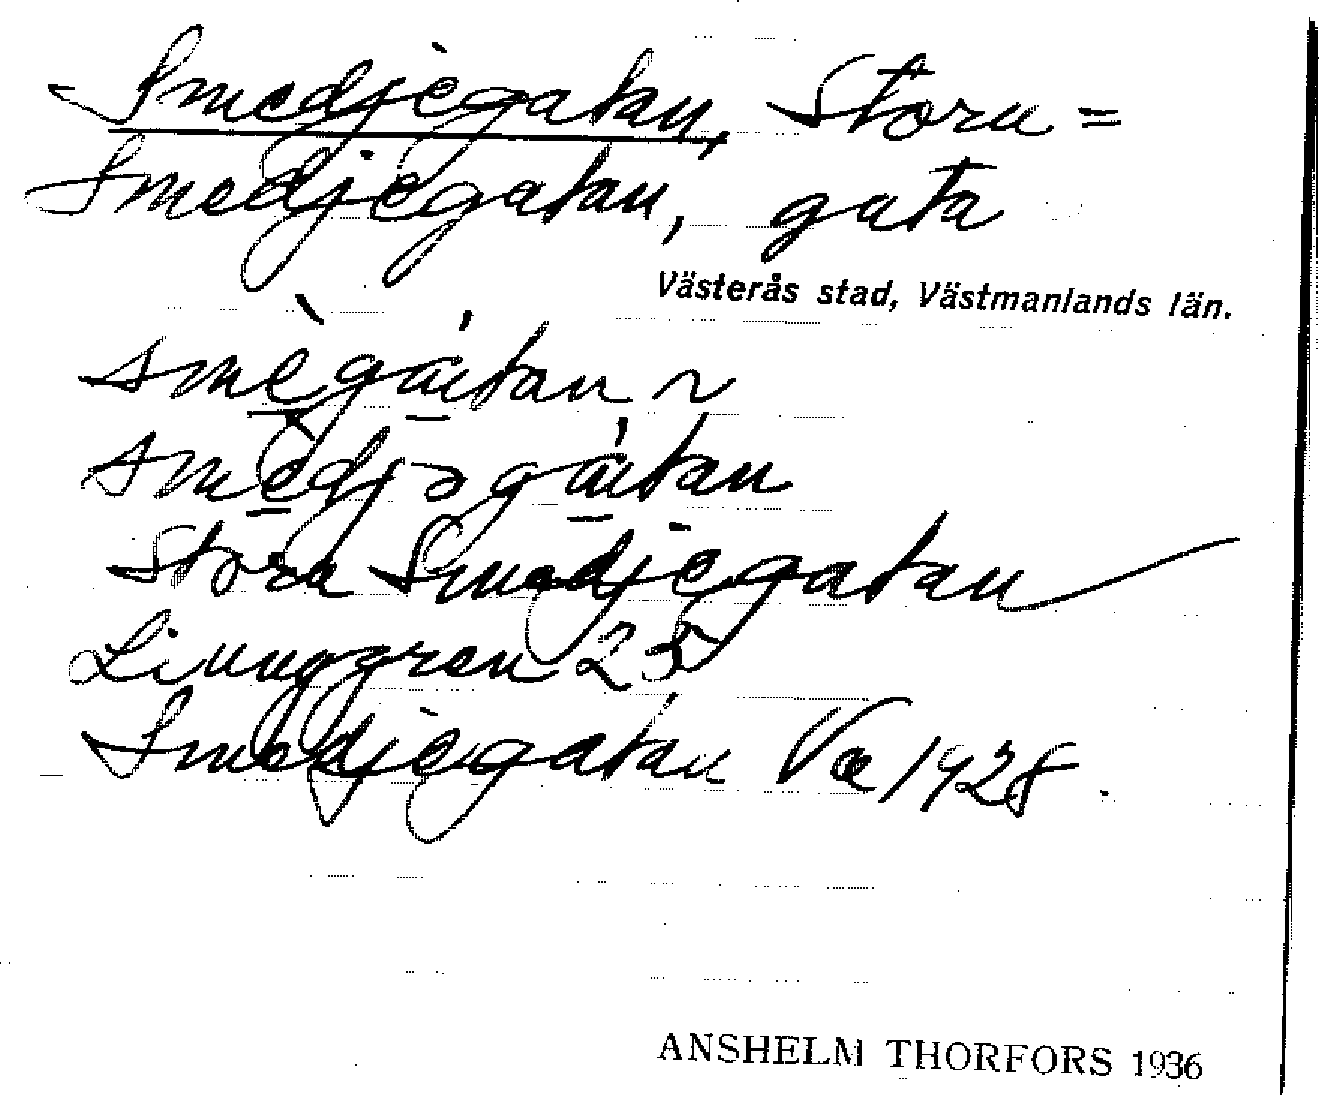 Smedjegatan, Stora =
Smedjegatan, gata
Västerås stad, Västmanlands län.
smègátan ~
smèdjəgátan
Stora Smedjegatan
Ljunggren 25
Smedjegatan Va 1928.
ANSHELM THORFORS 1936